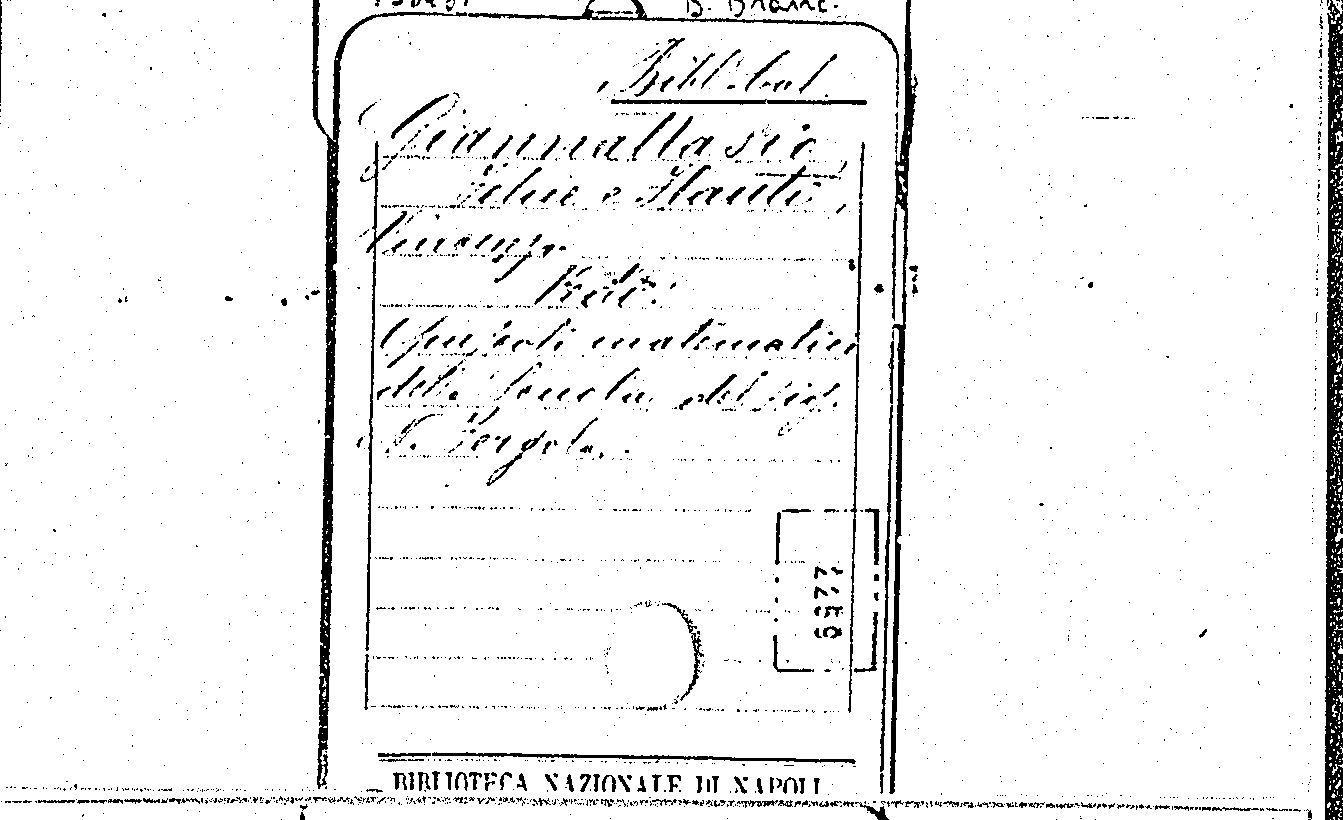 B. Brancc.
Bibl. bat.
Giannattasio
Felice e Flauti,
Vincenzo
Vedi:
Opuscoli matematici
della Scuola del sig.
N. Fergola.
6977
BIBLIOTECA NAZIONALE DI NAPOLI